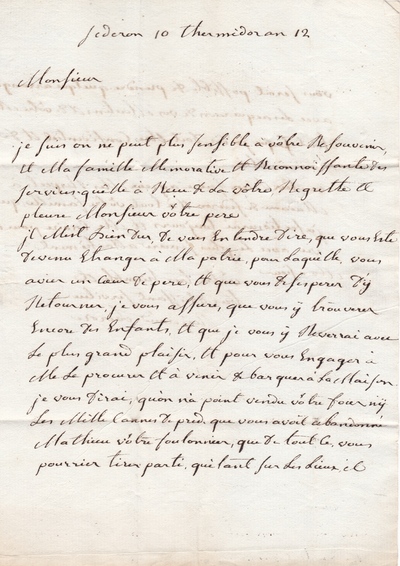 sederon 10 thermidor an 12
Monsieur
je suis on ne peut plus sensible à vôtre Resouvenir,
et Ma famille Memorative et Reconnoissante des
services quelle à Reçu de La vôtre Regrette et
pleure Monsieur vôtre pere
jl M'est bien Dur, De vous Entendre Dire, que vous Este
Devenu Etranger à Ma patrie, pour Laquelle vous
aviez un Cœur De pere, et que vous Desesperez D'y
Retourner, je vous assure, que vous ÿ trouverez
Encore Des Enfants, et que je vous ÿ Reverrai avec
Le plus grand plaisir, et pour vous Engager à
Me Le procurer et à venir Debarquer a La Maison
je vous Dirai, qu'on n'a point vendu vôtre four nÿ
Les Mille Cannes De pred, que vous avoit abandonné
Mathieu vôtre foulonnier, que De tout Ce, vous
pourriez tirer parti, qu'étant sur Les Lieux, il